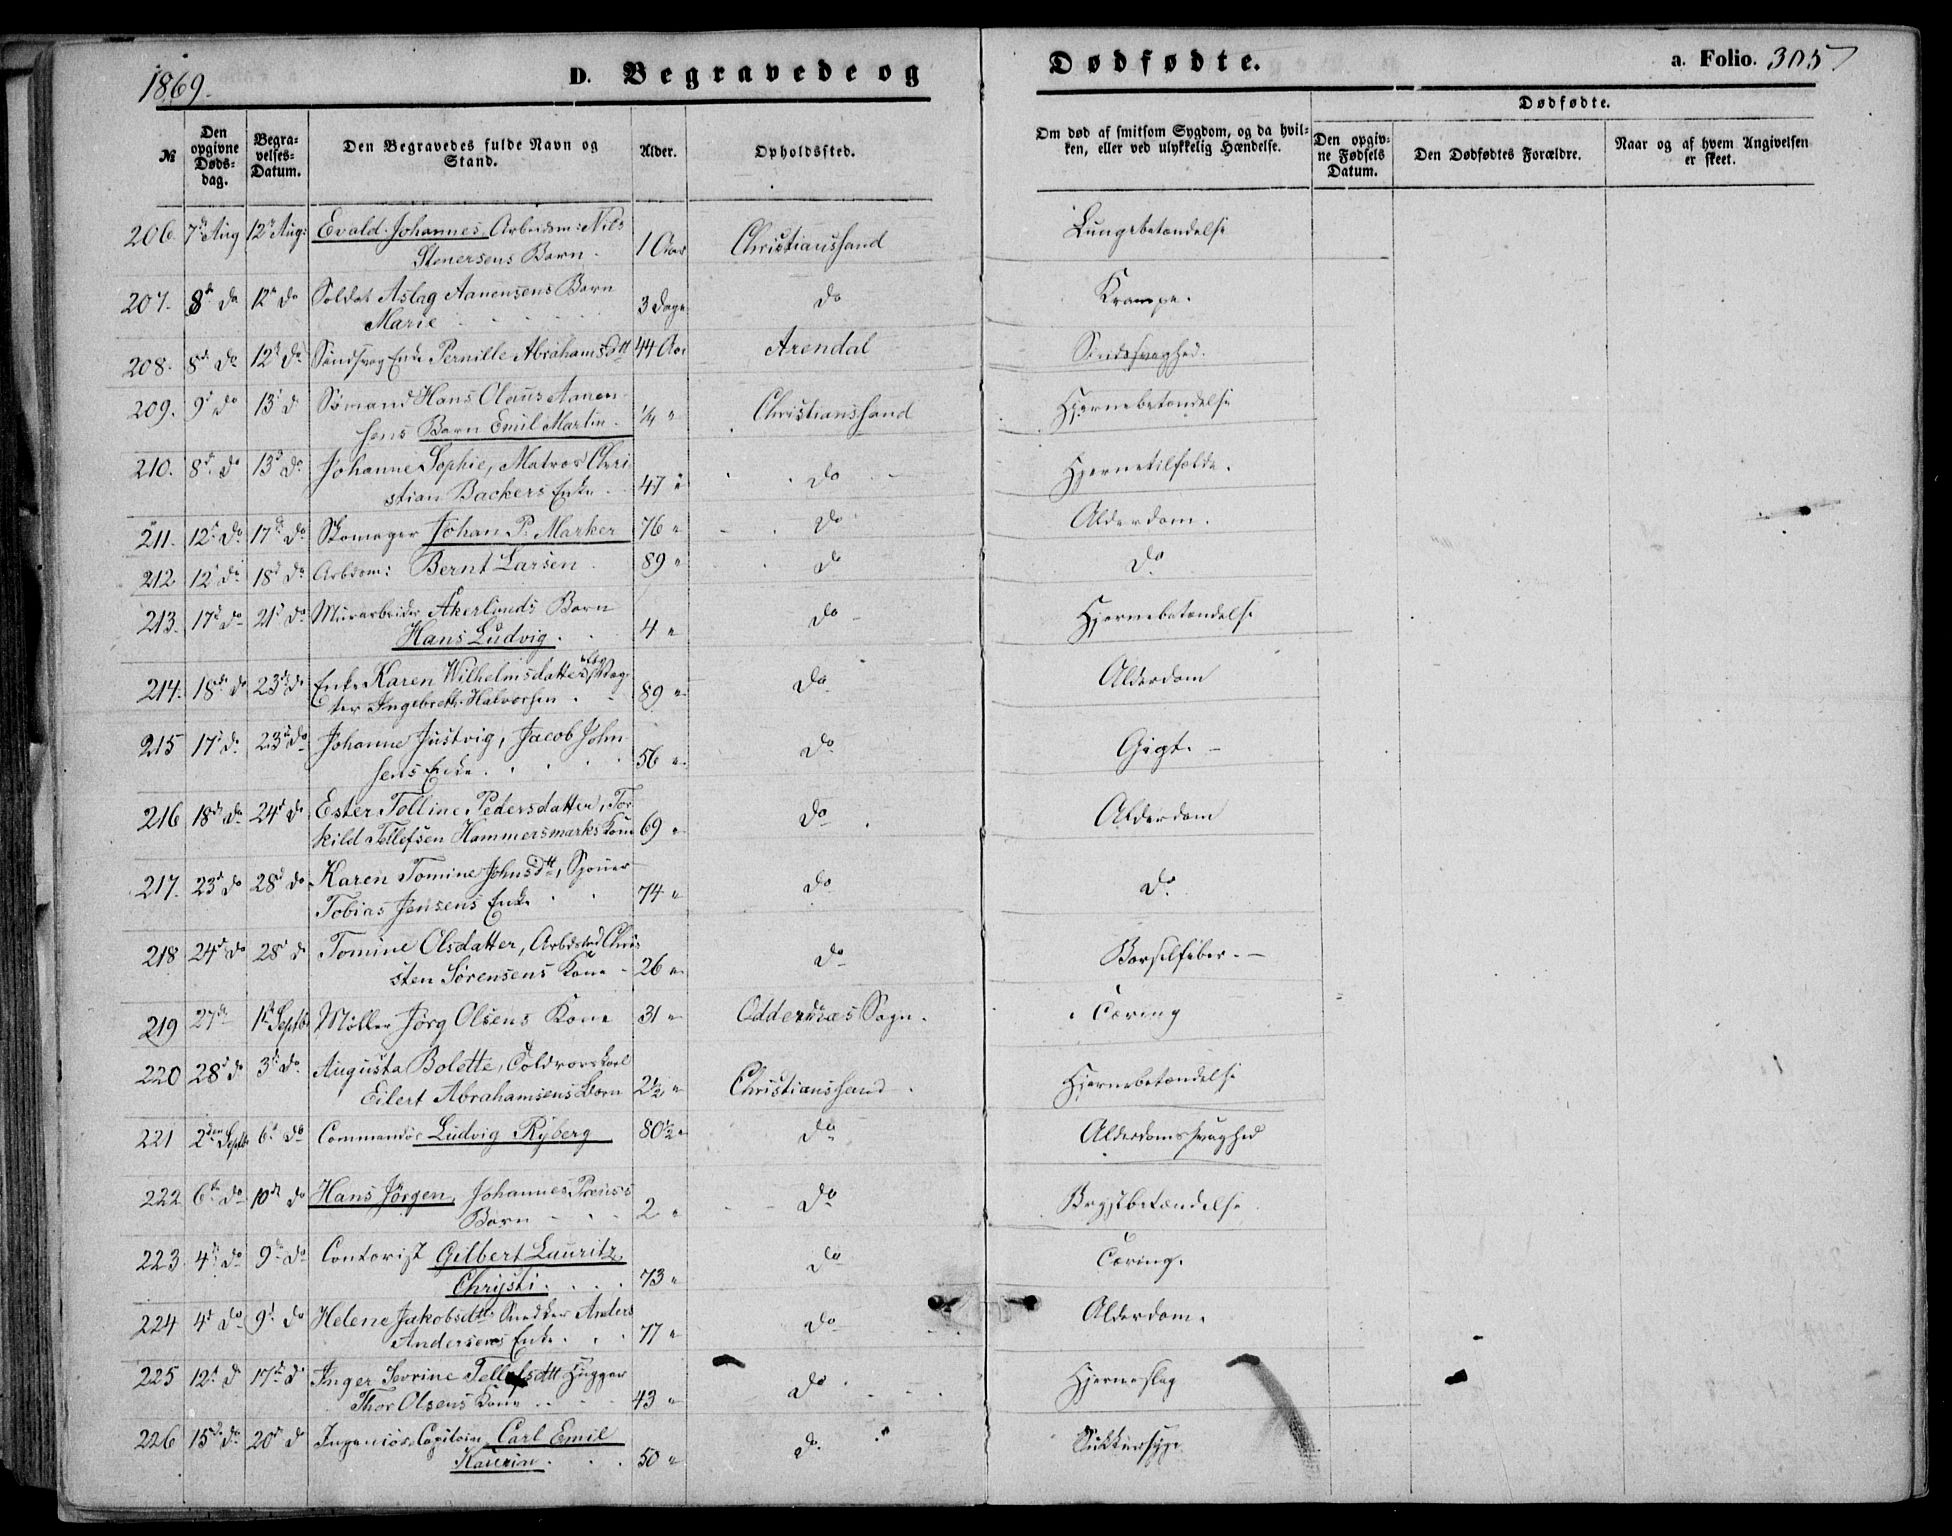 1869.
D. Begravede og Dødfødte.
a. Folio. 305
№
Den opgivne Døds-dag.
Begra-velses-Datum.
Den Begravedes fulde Navn og Stand.
Alder.
Opholdssted.
Om død af smitsom Sygdom, og da hvil-ken, eller ved ulykkelig Hændelse.
Dødfødte.
Den opgiv-ne Fødsels Datum.
Den Dødfødtes Forældre.
Naar og af hvem Angivelsen er skeet.
206. 7de Aug 12te Aug: Evald Johannes, Arbeidsm: Nils
Stenersens Barn. 1 Aar Christianssand Lungebetændelse
207. 8de do 12te do Soldat Aslag Aanensens Barn
Marie 3 Dage do Krampe.
208. 8de do 12te do Sindssvag Enke Pernille Abrahamsdtt 44 Aar Arendal Sindssvaghed.
209. 9de do 13de do Sømand Hans Olaus Aanen-
sens Barn Emil Martin. 1/4 " Christianssand Hjernebetændelse
210. 8de do 13de do Johanne Sophie, Matros Chri-
stian Backers Enke 47 " do Hjernetilfælde.
211. 12te do 17de do Skomager Johan P. Marker 76 " do Alderdom.
212 12te do 18de do Arbdsm: Bernt Larsen 89 " do do
213. 17de do 21de do Murarbeider Åkerlunds Barn
Hans Ludvig. 4 " do Hjernebetændelse
214. 18de do 23de do Enke Karen Wilhelmsdatter, Væg-
ter Ingebreth Halvorsen. 89 " do Alderdom
215 17de do 23de do Johanne Justvig, Jacob John-
sens Enke. 56 " do Gigt.
216 18de do 24de do Ester Tolline Pedersdatter, Tor-
kild Tellefsen Hammersmarks Kone 69 " do Alderdom
217. 23de do 28de do Karen Tomine Johnsdtt, Sjouer
Tobias Jensens Enke 74 " do do
218 24de do 28de do Tomine Olsdatter, Arbdsmd Chri-
sten Sørensens Kone 26 " do Barselfeber.
219 27de 1ste Septbr Møller Jörg Olsens Kone 31 " Oddernæs Sogn. Tæring
220 28de do 3de do Augusta Bolette, Toldroerskarl
Eilert Abrahamsens Barn 2 1/2 " Christianssand Hjernebetændelse
221 2den Septbr 6te do Commandør Ludvig Ryberg 80 1/2 " do Alderdomssvaghed
222 6te do 10de do Hans Jörgen, Johannes Preuss
Barn 2 " do Brystbetændelse
223. 4de do 9de do Contorist Gilbert Lauritz
Chrysti. 73 " do Tæring.
224 4de do 9de do Helene Jakobsdtt Snedker Anders
Andersens Enke. 77 " do Alderdom.
225 12te do 17de do Inger Sevrine Tellefsdtt Hugger
Thor Olsens Kone 43 " do Hjerneslag
226 15de do 20de do Ingeniør Capitain Carl Emil
Kaurin. 50 " do Sukkersyge